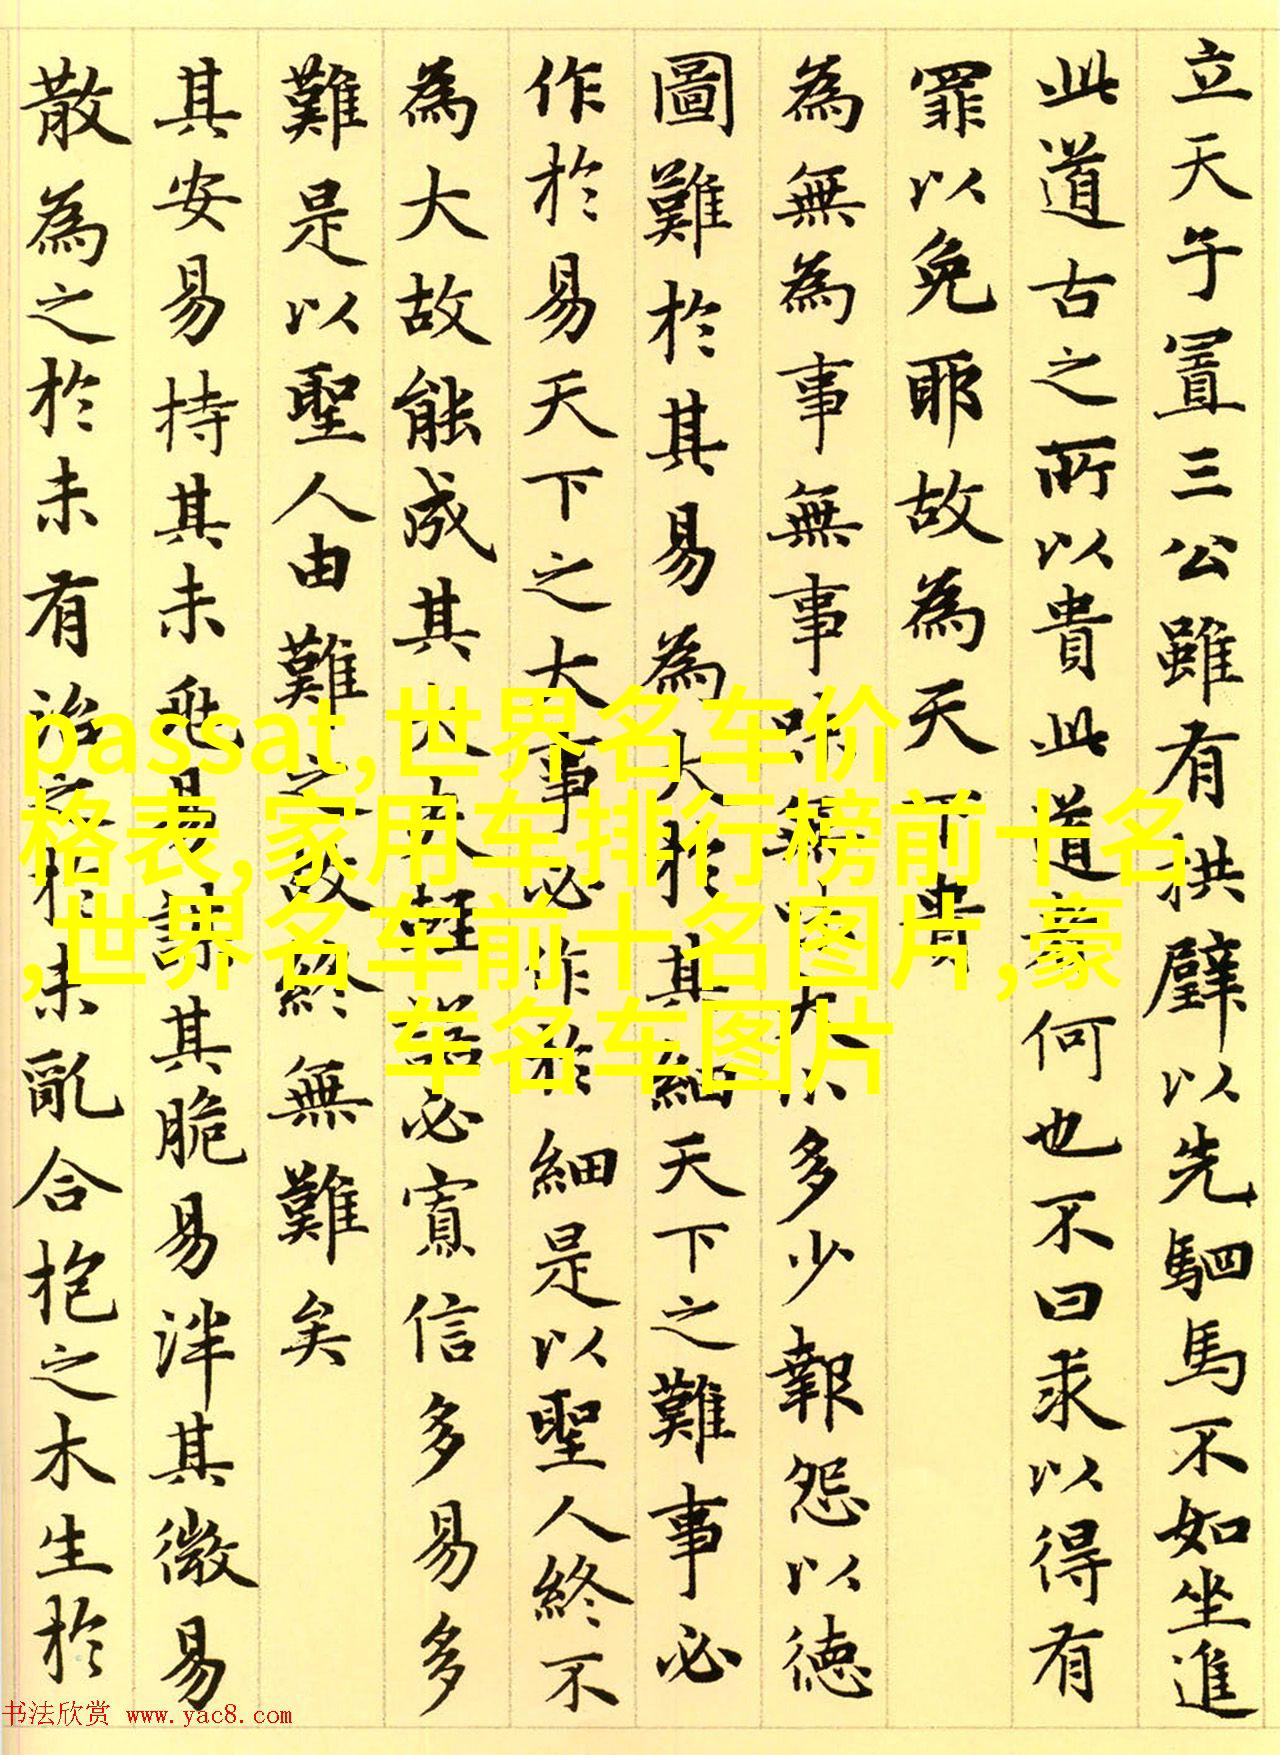 立天子置三公雖有拱璧以先駟馬不如坐進
此道古之所以貴此道者何也不曰求以得有
罪以免耶故為天下貴
為無為事無事味無味大小多少報怨以德
圖難於其易為大於其細天下之難事必
作於易天下之大事必作於細是以聖人終不
為大故能成其大夫輕諾必寡信多易多
難是以聖人由難之故終無難矣
其安易持其未兆易謀其脆易泮其微易
散為之於未有治之於未亂合抱之木生於
passat,世界名车价
格表,家用车排行榜前十名
,世界名车前十名图片,豪
车名车图片
书法欣赏 www.yac8.com